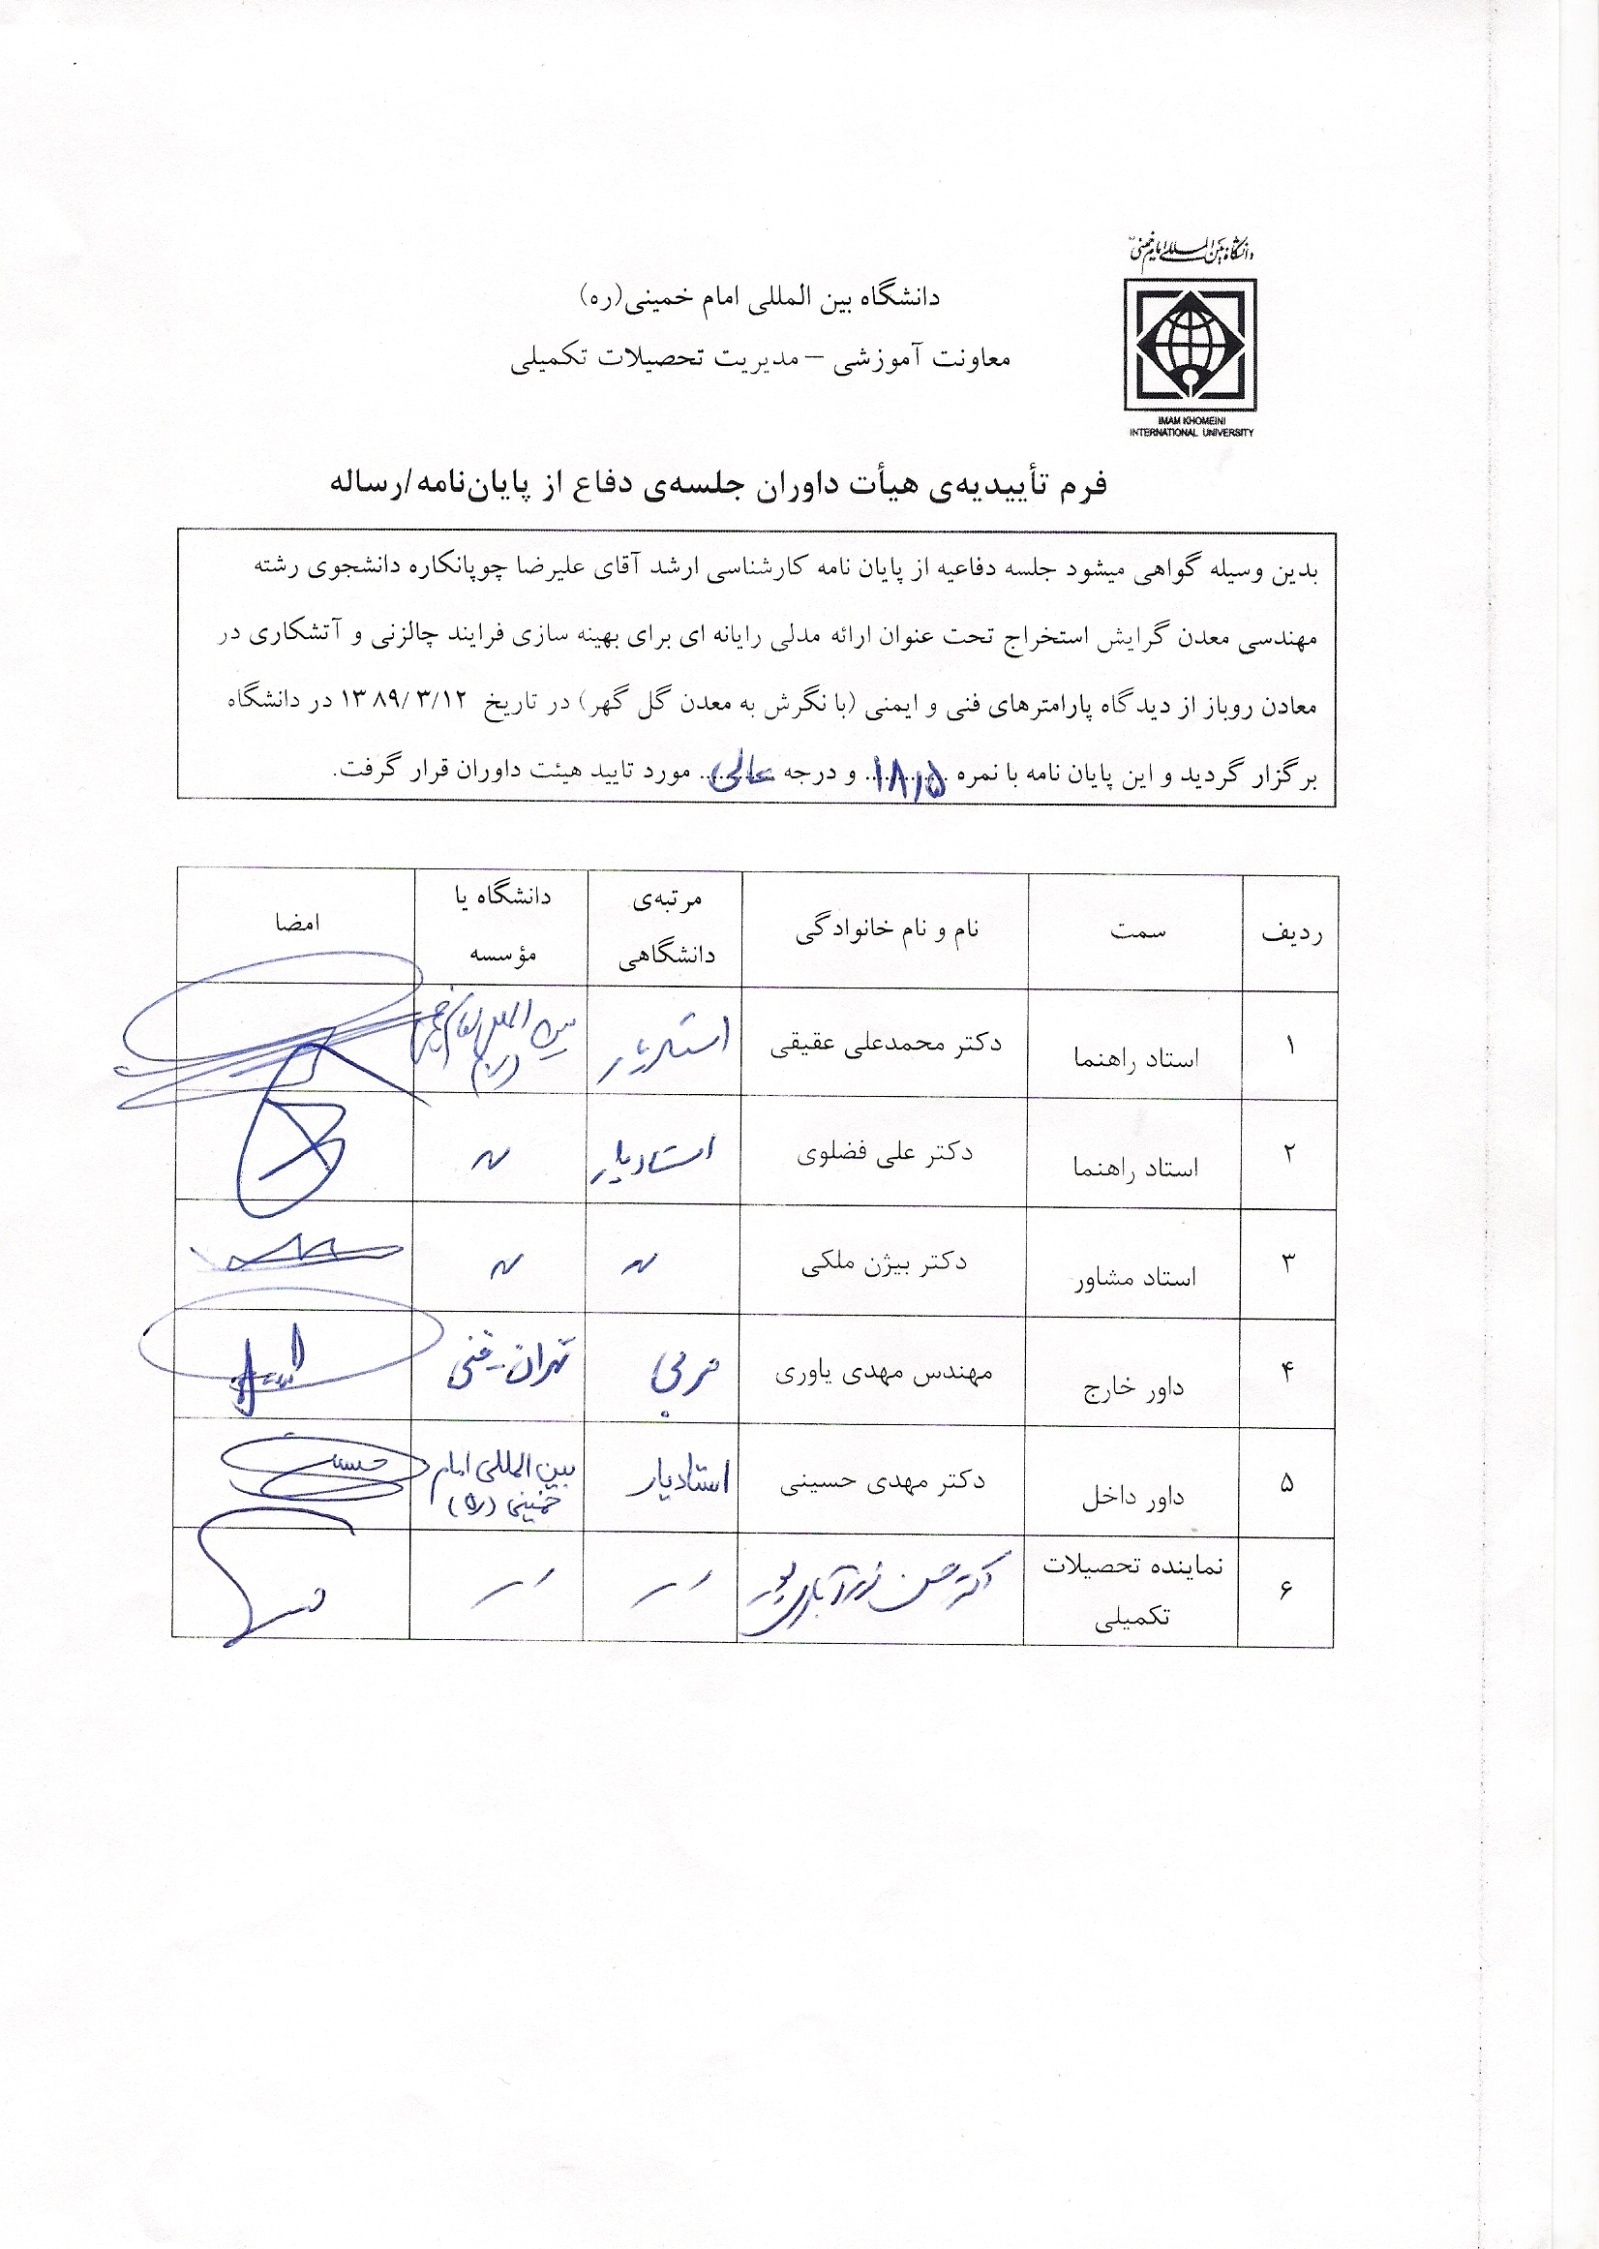 دانشگاه بین المللی امام خمینی
IMAM KHOMEINI
INTERNATIONAL UNIVERSITY
دانشگاه بین المللی امام خمینی(ره)
معاونت آموزشی – مدیریت تحصیلات تکمیلی
فرم تأییدیه‌ی هیأت داوران جلسه‌ی دفاع از پایان‌نامه/رساله
بدین وسیله گواهی میشود جلسه دفاعیه از پایان نامه کارشناسی ارشد آقای علیرضا چوپانکاره دانشجوی رشته
مهندسی معدن گرایش استخراج تحت عنوان ارائه مدلی رایانه ای برای بهینه سازی فرایند چالزنی و آتشکاری در
معادن روباز از دیدگاه پارامترهای فنی و ایمنی (با نگرش به معدن گل گهر) در تاریخ ۱۳۸۹/۳/۱۲ در دانشگاه
برگزار گردید و این پایان نامه با نمره ۱۸٫۵ و درجه عالی مورد تایید هیئت داوران قرار گرفت.
ردیف سمت نام و نام خانوادگی مرتبه‌ی دانشگاهی دانشگاه یا مؤسسه امضا
۱ استاد راهنما دکتر محمدعلی عقیقی استادیار بین المللی امام خمینی
۲ استاد راهنما دکتر علی فضلوی استادیار 〃
۳ استاد مشاور دکتر بیژن ملکی 〃 〃
۴ داور خارج مهندس مهدی یاوری مربی تهران - فنی
۵ داور داخل دکتر مهدی حسینی استادیار بین المللی امام خمینی (ره)
۶ نماینده تحصیلات تکمیلی دکتر حسن